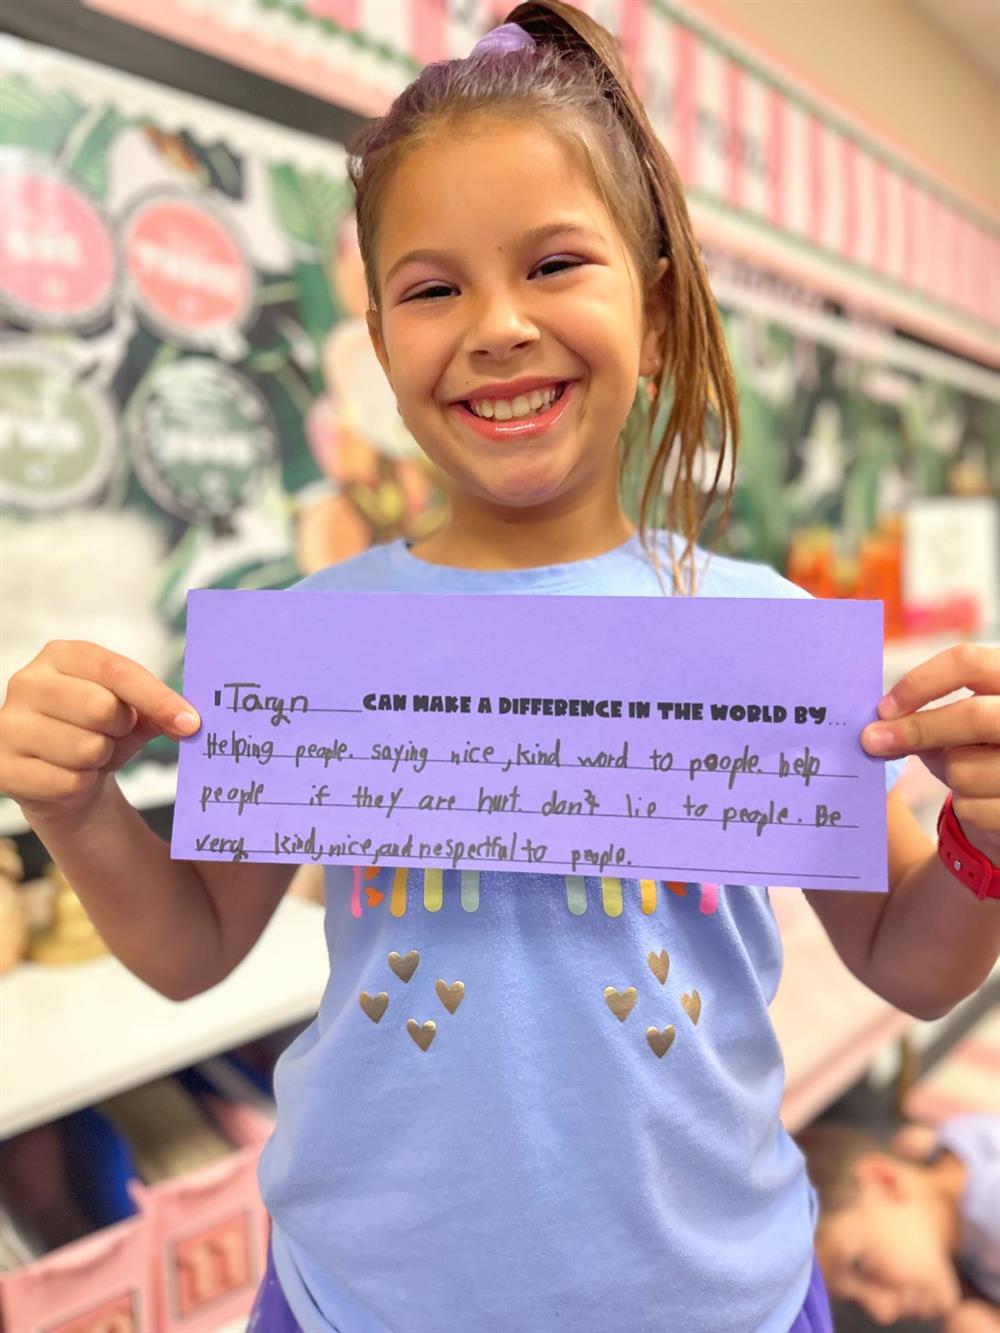 I Taryn CAN MAKE A DIFFERENCE IN THE WORLD BY...
Helping people. saying nice, kind word to people. help
people if they are hurt. don't lie to people. Be
very kind, nice, and respectful to people.
11